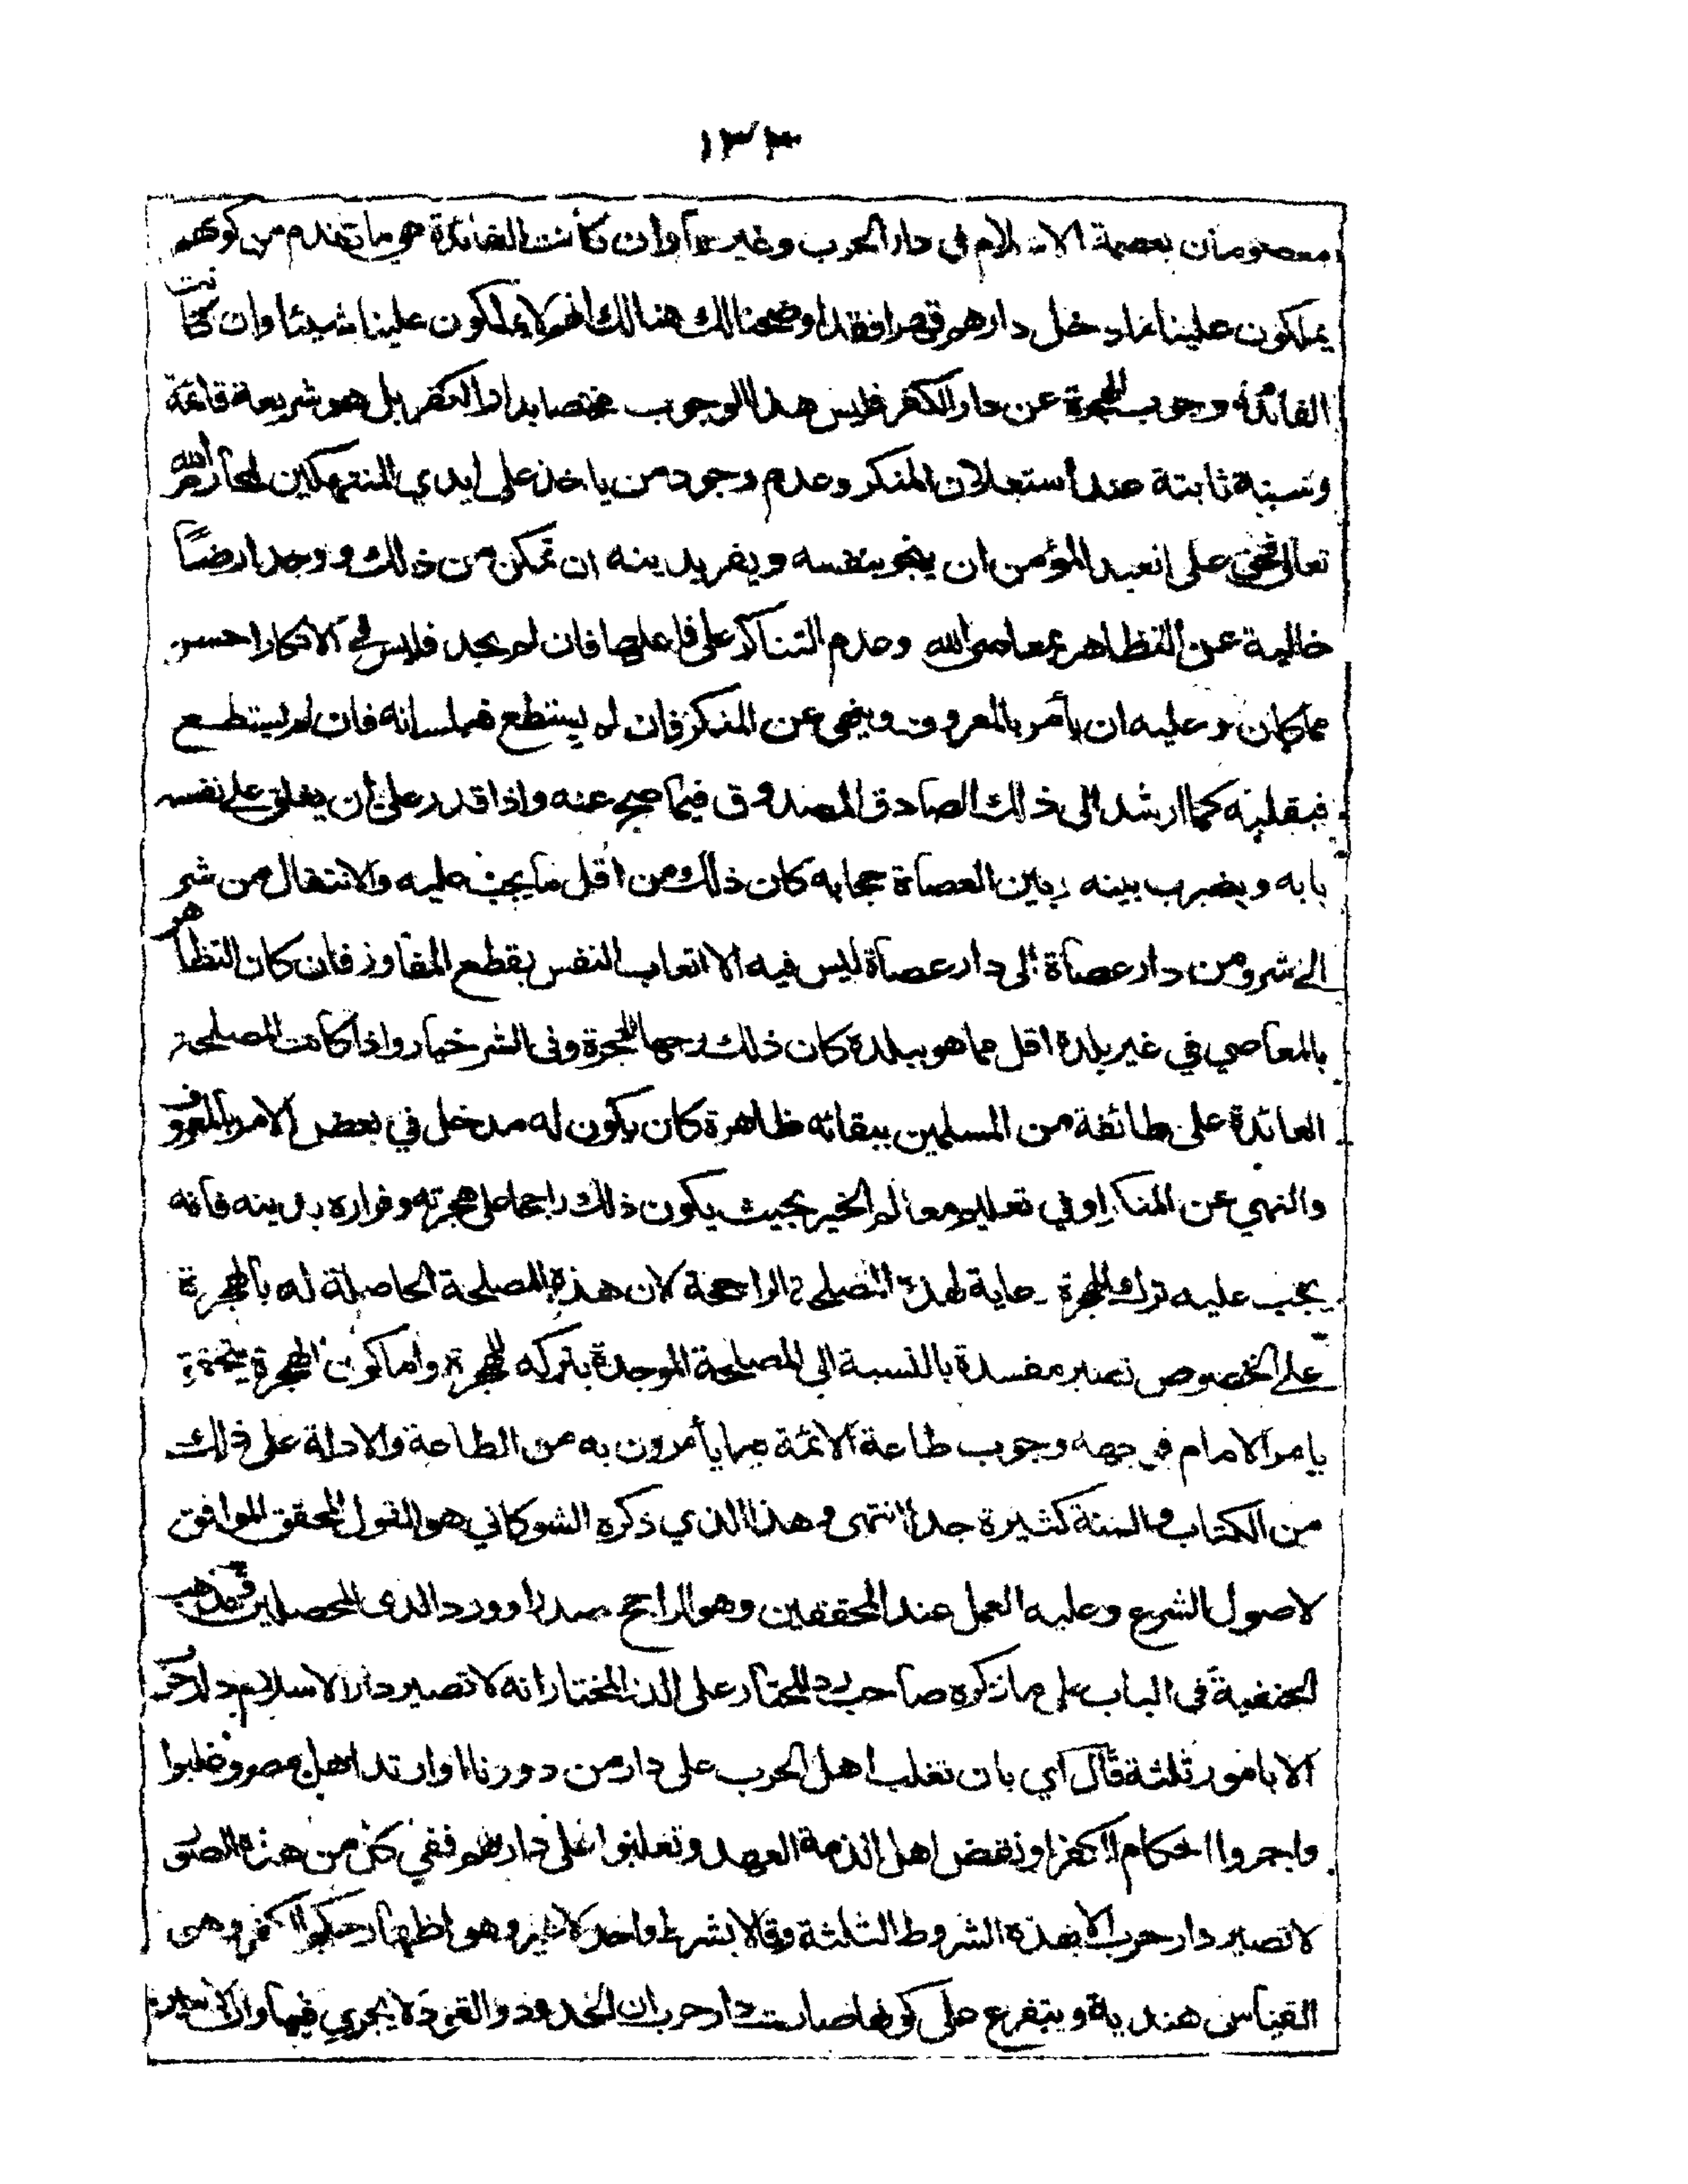 ١٣٣
معصومان بعصمة الاسلام في دار الحرب وغيرها وان كانت الفائدة هي ما تقدم من كونهم
يملكون علينا ما دخل دارهم قهرا فقد اوضحنا لك هنالك انهم لا يملكون علينا شيئا وان كانت
الفائدة وجوب الهجرة عن دار الكفر فليس هذا الوجوب مختصا بدار الكفر بل هو شريعة قائمة
وسنة ثابتة عند استعلان المنكر وعدم وجود من ياخذ على ايدي المنتهكين لمحارم الله
تعالى فحق على العبد المؤمن ان ينجو بنفسه ويفر بدينه ان تمكن من ذلك ووجد ارضا
خالية عن التظاهر بمعاصي الله وعدم التناكر على فاعليها فان لم يجد فليس في الامكان احسن
مما كان وعليه ان يأمر بالمعروف وينهى عن المنكر فان لم يستطع فبلسانه فان لم يستطع
فبقلبه كما ارشد الى ذلك الصادق المصدوق فيما صح عنه واذا قدر على ان يغلق على نفسه
بابه ويضرب بينه وبين العصاة حجابه كان ذلك من اقل ما يجب عليه والانتقال من شر
الى شر ومن دار عصاة الى دار عصاة ليس فيه الا اتعاب النفس بقطع المفاوز فان كان التظاهر
بالمعاصي في غير بلده اقل مما هو ببلده كان ذلك وجها للهجرة وفي الشر خيار واذا كانت المصلحة
العائدة على طائفة من المسلمين ببقائه ظاهرة كان يكون له مدخل في بعض الامر بالمعروف
والنهي عن المنكر او في تعليم معالم الخير بحيث يكون ذلك راجحا على هجرته وفراره بدينه فانه
يجب عليه ترك الهجرة رعاية لهذه المصلحة الراجحة لان هذه المصلحة الحاصلة له بالهجرة
على الخصوص تصير مفسدة بالنسبة الى المصلحة الموجدة بتركه للهجرة واما كون الهجرة متحققة
يامر الامام فوجهه وجوب طاعة الائمة فيما يأمرون به من الطاعة والادلة على ذلك
من الكتاب والسنة كثيرة جدا انتهى وهذا الذي ذكره الشوكاني هو القول المحقق الموافق
لاصول الشرع وعليه العمل عند المحققين وهو الراجح صدرا ووردا لدى المحصلين ومذهب
الحنفية في الباب على ما ذكره صاحب رد المحتار على الدر المختار انه لا تصير دار الاسلام دار حرب
الا بامور ثلثة قال اي بان تغلب اهل الحرب على دار من دورنا او ارتد اهل مصر وغلبوا
واجروا احكام الكفر او نقض اهل الذمة العهد وتغلبوا على دارهم ففي كل من هذه الصور
لا تصير دار حرب الا بهذه الشروط الثلثة وقالا بشرط واحد لا غير وهو اظهار حكم الكفر وهو
القياس هندية ويتفرع على كونها صارت دار حرب ان الحدود والقود لا يجري فيها وان